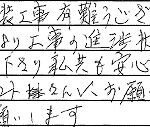 装工事有難うござ
より工事の進捗状
下さり私共も安心
コート様さんにお願
願いします